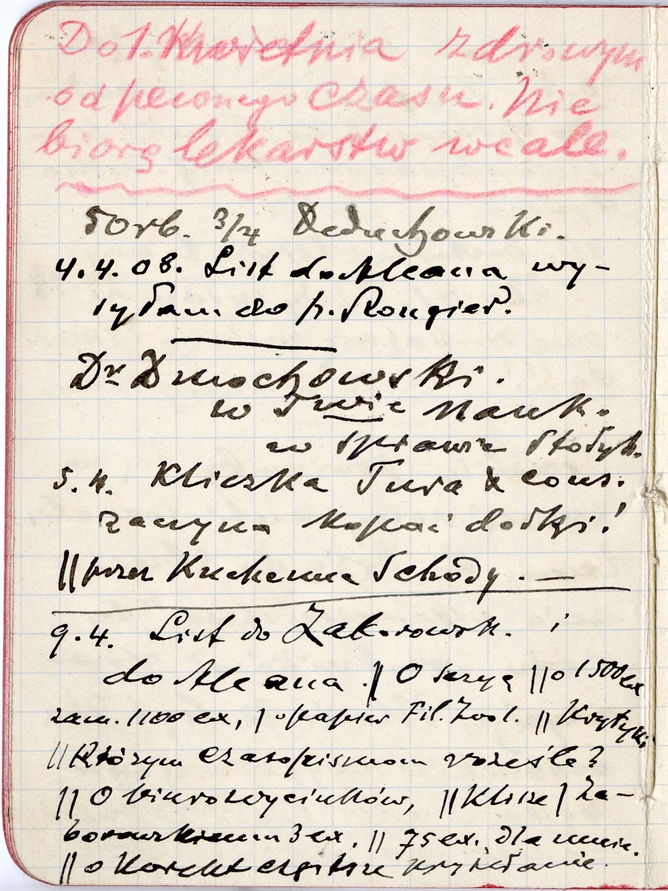 Do 1. Kwietnia zdrowym
od pewnego czasu. Nie
biorę lekarstw wcale.
50 rb. 3/4 Deduchowski.
4.4.08. List do Aleana wy-
syłam do p. Rongier.
Dr Dmochowski.
w Twie Nauk.
w sprawie Stołyh.
5.4. Kliczka Tura & cons.
zaczyna kopać dołki!
|| przez Kuchenne Schody. —
9.4. List do Zakrowsk. i
do Aleana. || O seryę || o 1500 ex
zam. 1100 ex, | o papier Fil. Zool. || Krytyki
|| Którym czasopismom roześle?
|| O biuro wycinków, || Klisze | Za-
borowskiemu 3 ex. || 75 ex. dla mnie.
|| o Korekt